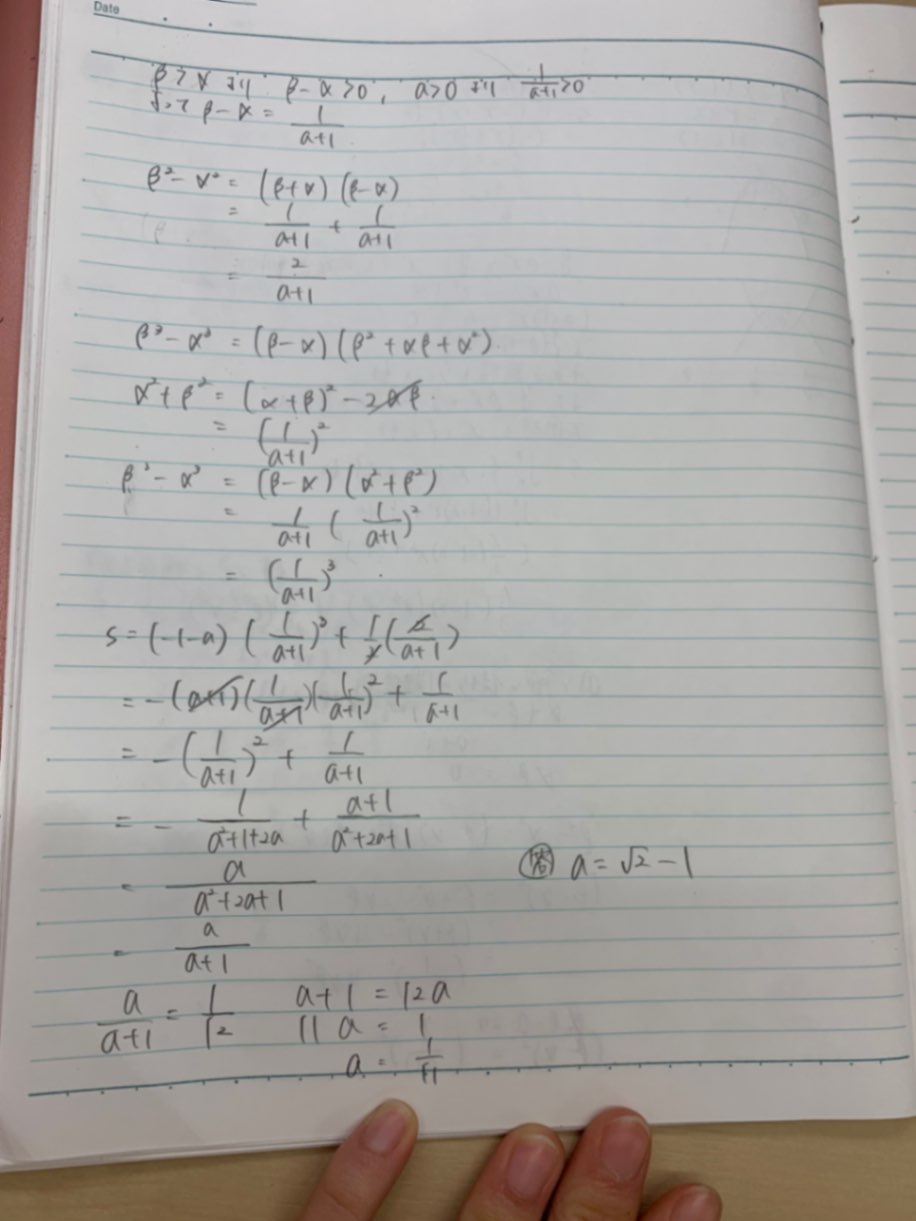 Date
β>α より β-α>0, a>0 より 1/(a+1)>0
よって β-α = 1/(a+1)
β²-α² = (β+α)(β-α)
= 1/(a+1) + 1/(a+1)
= 2/(a+1)
β³-α³ = (β-α)(β²+αβ+α²).
α²+β² = (α+β)²-2αβ.
= (1/(a+1))²
β³-α³ = (β-α)(α²+β²)
= 1/(a+1) (1/(a+1))²
= (1/(a+1))³
S = (-1-a)(1/(a+1))³ + 1/2(2/(a+1))
= -(a+1)(1/(a+1))(1/(a+1))² + 1/(a+1)
= -(1/(a+1))² + 1/(a+1)
= - 1/(a²+1+2a) + (a+1)/(a²+2a+1)
= a/(a²+2a+1)
答 a = √2-1
= a/(a+1)
a/(a+1) = 1/12 a+1 = 12a
11a = 1
a = 1/11